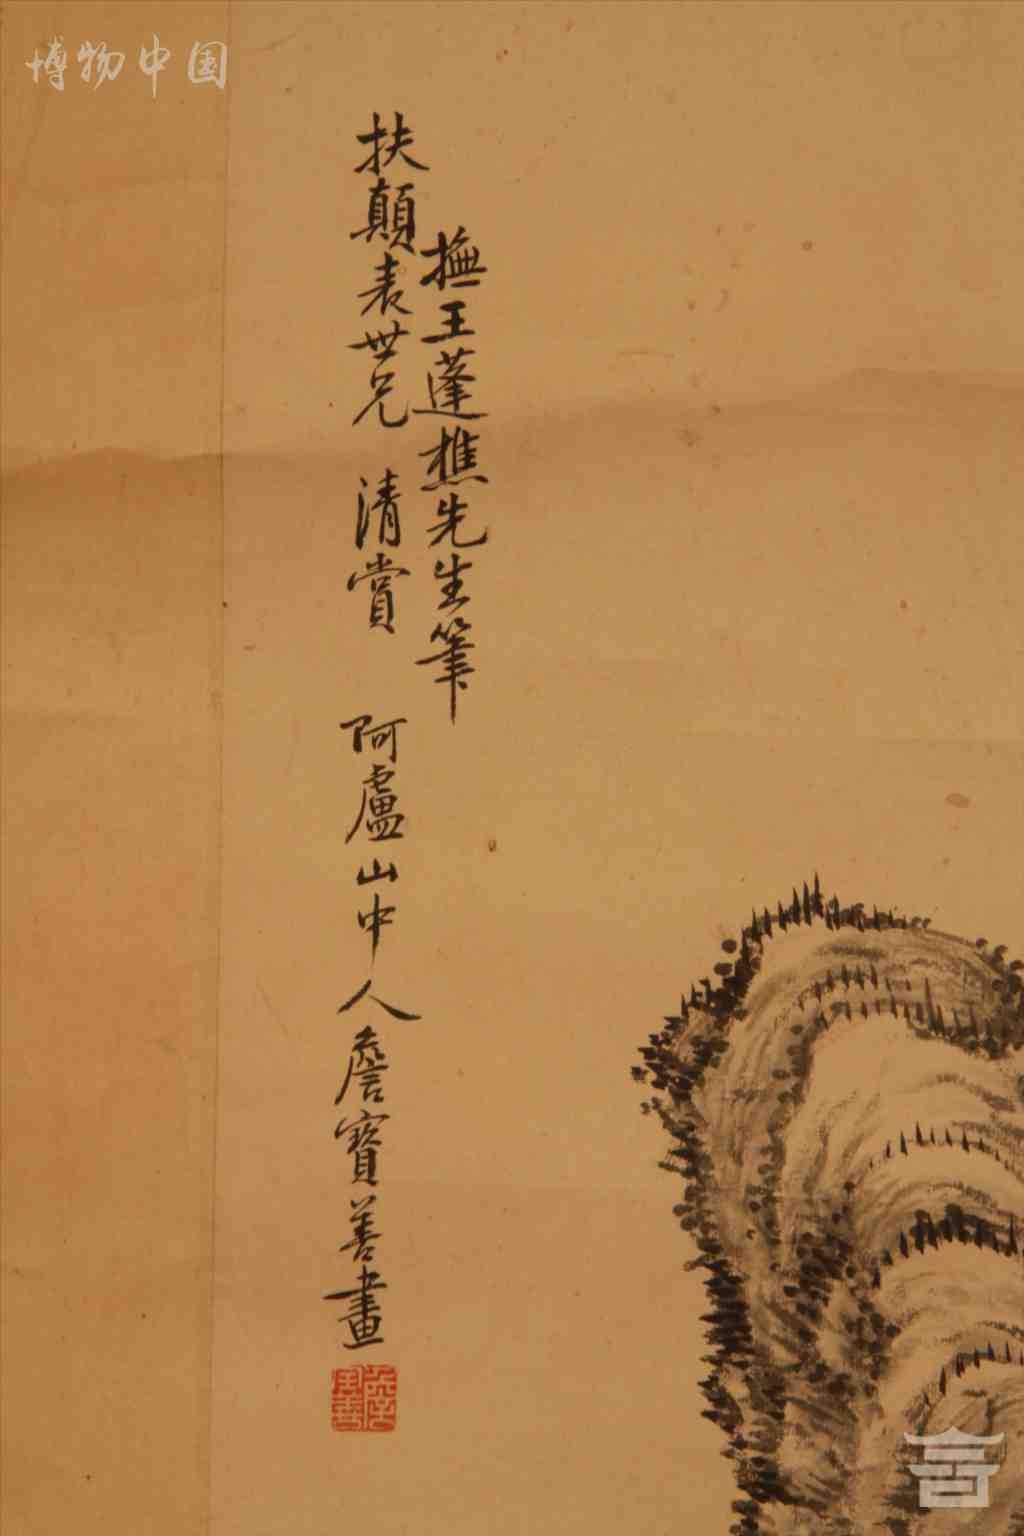 博物中国
撫王蓬樵先生筆
扶顛表世兄 清賞 阿盧山中人詹寶善畫